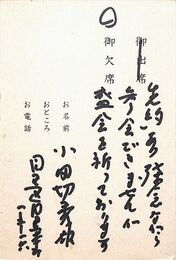 御出席
御欠席
先約あり残念ながら
参会できませんが
盛会を祈っております
お名前 小田切秀雄
おところ
お電話